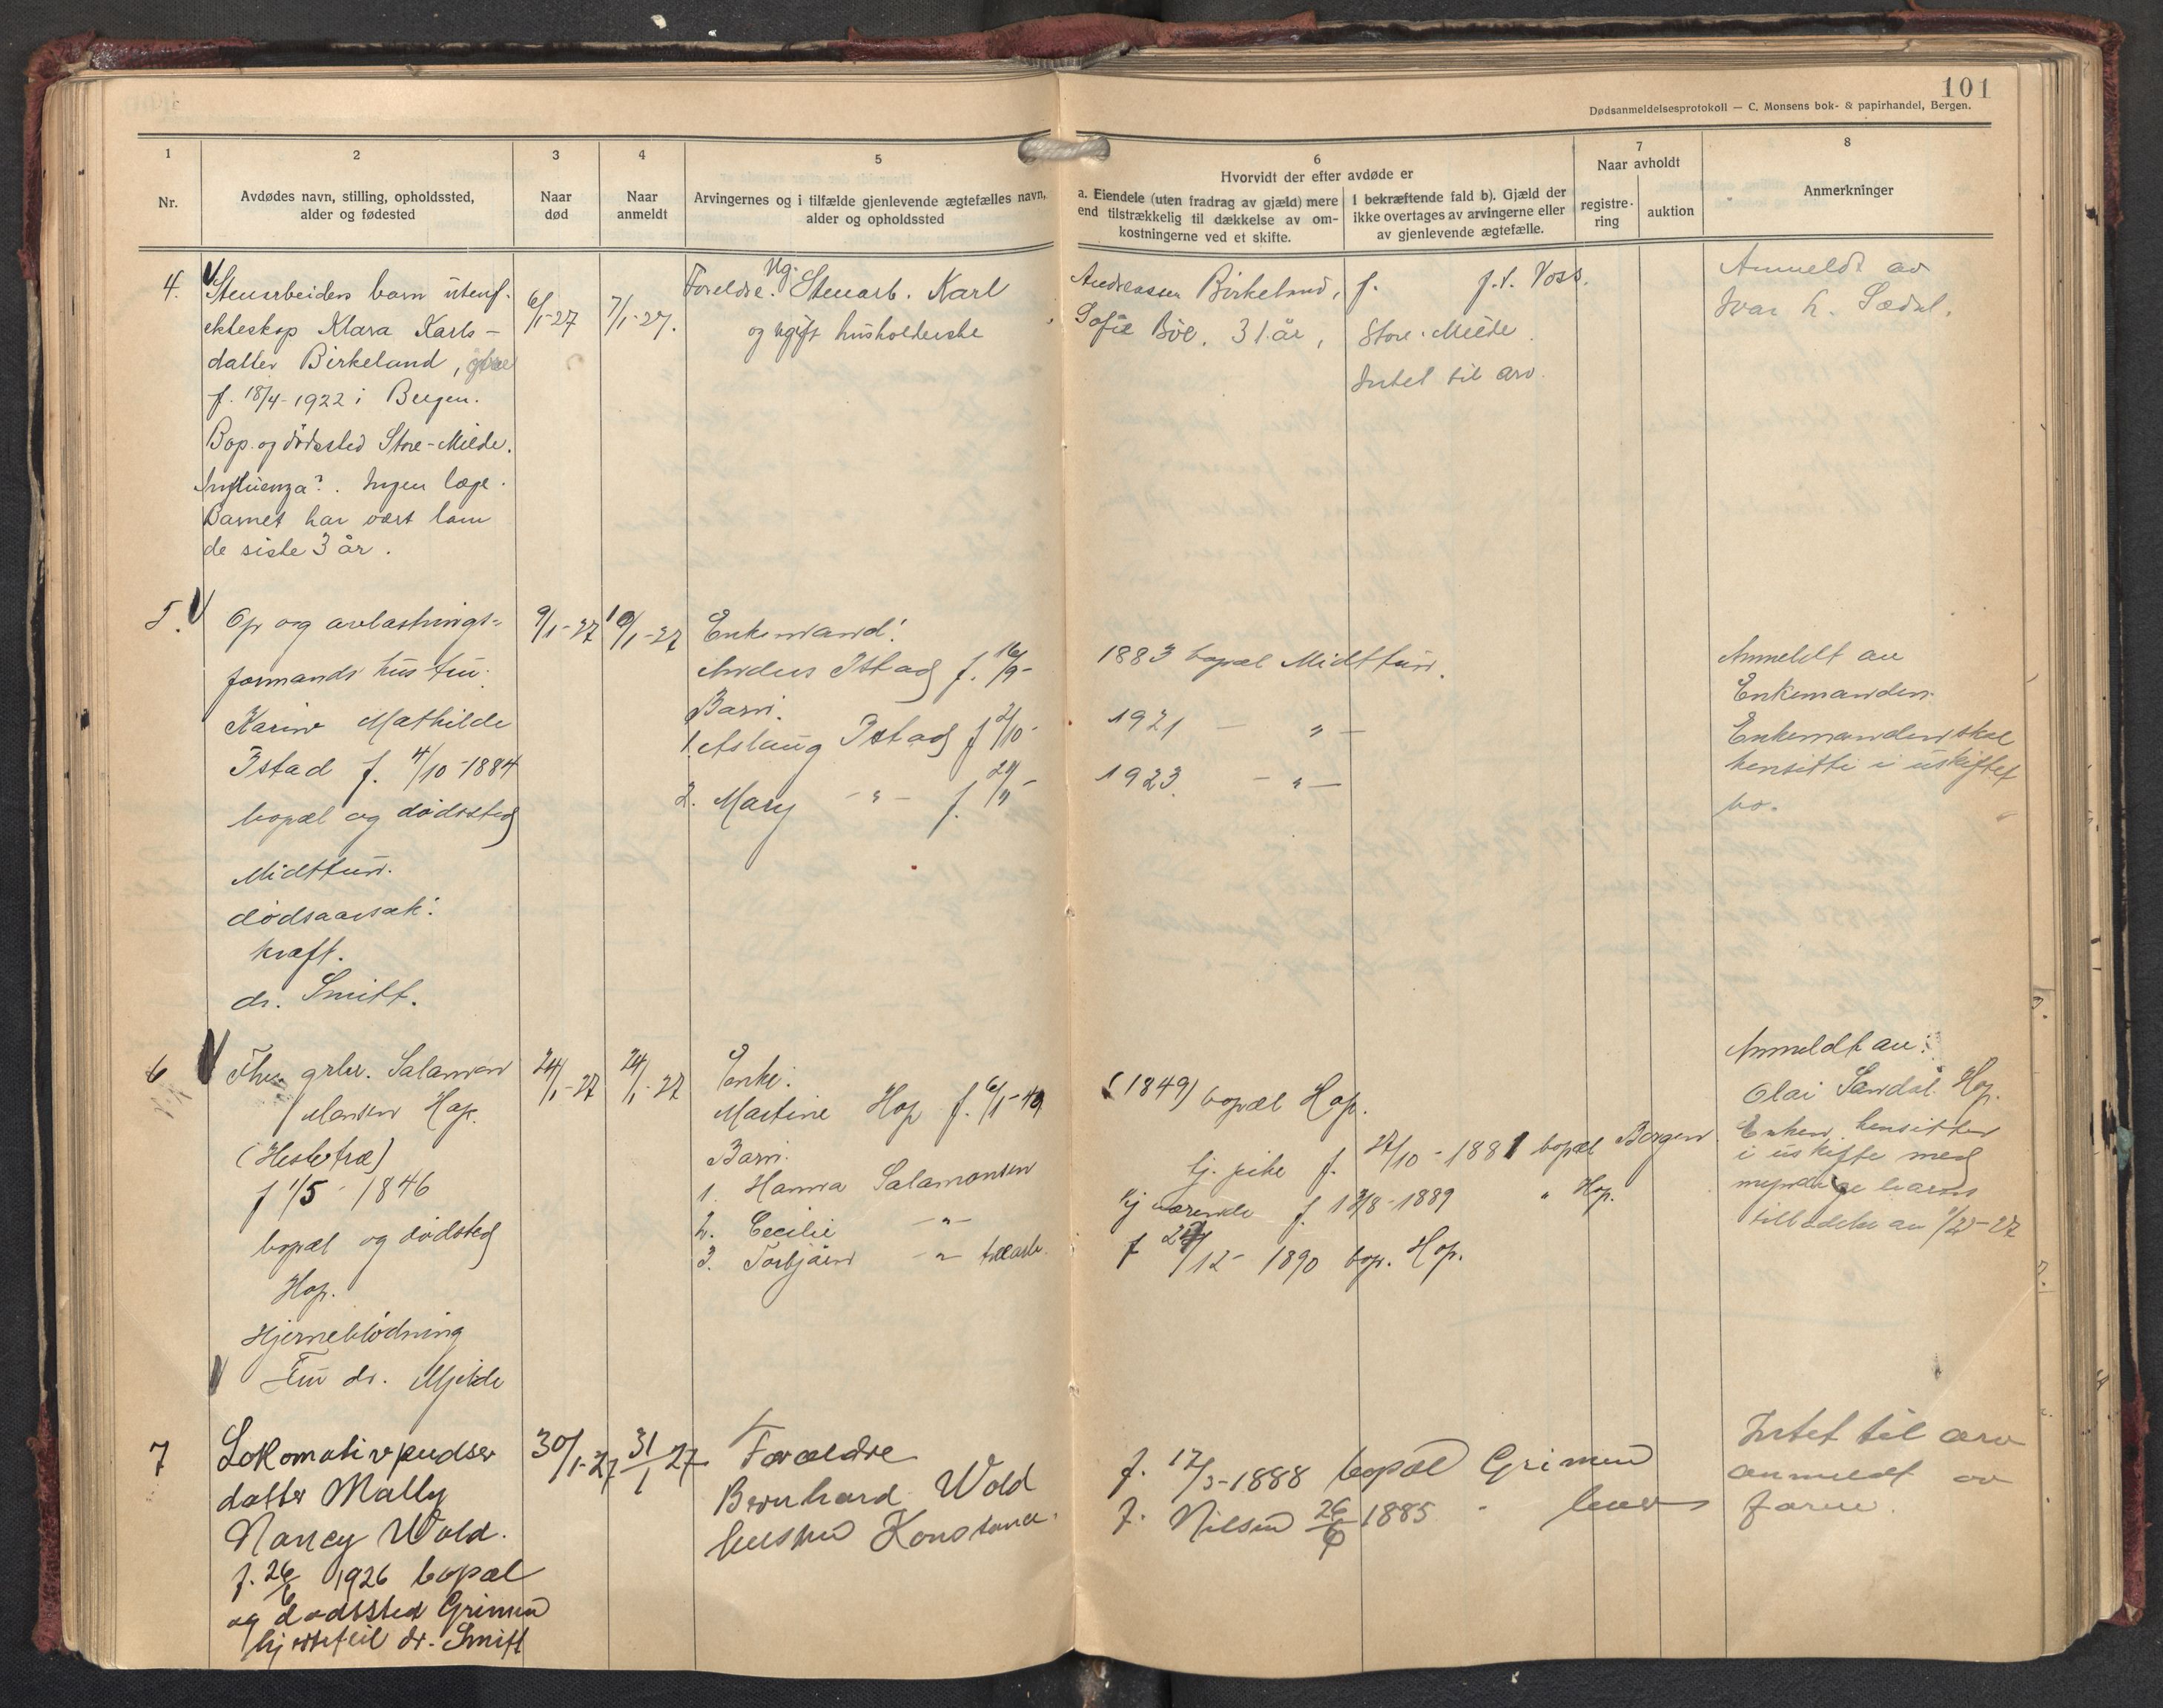 101
Dødsanmeldelsesprotokoll — C. Monsens bok- & papirhandel, Bergen.
1
Nr.
2
Avdødes navn, stilling, opholdssted,
alder og fødested
3
Naar
død
4
Naar
anmeldt
5
Arvingernes og i tilfælde gjenlevende ægtefælles navn,
alder og opholdssted
6
Hvorvidt der efter avdøde er
a. Eiendele (uten fradrag av gjæld) mere
end tilstrækkelig til dækkelse av om-
kostningerne ved et skifte.
I bekræftende fald b). Gjæld der
ikke overtages av arvingerne eller
av gjenlevende ægtefælle.
7
Naar avholdt
registre-
ring
auktion
8
Anmerkninger
4.
Stenarbeiders barn utenf.
ekteskap Klara Karls-
datter Birkeland,
f. 18/4-1922 i Bergen.
Bop. og dødssted Store-Milde.
Influenza?. Ingen læge.
Barnet har vært lam
de siste 3 år.
6/1-27
7/1-27.
Foreldre. Ug. Stenarb. Karl
og ugift husholderske
Andreassen Birkeland, f. f.t. Voss.
Sofie Böe, 31 år, Store-Milde.
Intet til arv.
Anmeldt av
Ivar H. Sædal.
5.
Op og avlastnings-
formands hustru
Karin Mathilde
Istad f. 4/10-1884
bopæl og dødssted
Midttun.
dødsaarsak:
kræft.
dr. Smitt.
9/1-27
10/1-27
Enkemand:
Anders Istad f. 16/9-
Barn.
1. Aslaug Istad f 2/10-
2. Mary -"- f.
1883 bopæl Midttun.
1921 - " -
1923. - " -
Anmeldt av
Enkemanden.
Enkemanden skal
hensitte i uskiftet
bo.
6
Fhv. grbr. Salamon
Monsen Hop.
(Hestetræ)
f 1/5 - 1846
bopæl og dødsted
Hop.
Hjerneblødning
Fru dr. Mjelde
24/1-27
24/1-27
Enke:
Martine Hop f. 6/1-49
Barn.
1. Hanna Salamonsen
2. Cecilie -"-
3. Torbjørn -"-
(1849) bopæl Hop.
tj. pike f. 27/10-1881 bopæl Bergen.
hjemværende f. 13/8-1889 " Hop.
f 12- 1890 bop. Hop.
Anmeldt av:
Olai Sandal Hop.
Enken hensitter
i uskifte med
myndige barns
tilladelse av 1/2-27
7
Lokomotivpudser
datter Mally
Nancy Wold.
f. 26/6 1926 bopæl
og dødssted Grimen
hjertefeil dr. Smitt
30/1-27
31/1 27
Forældre
Bernhard Wold
hustru Konstanse.
f. 17/3-1888 bopæl Grimen
f. Nilsen 26/6 1885 -
Intet til arv
anmeldt av
faren.